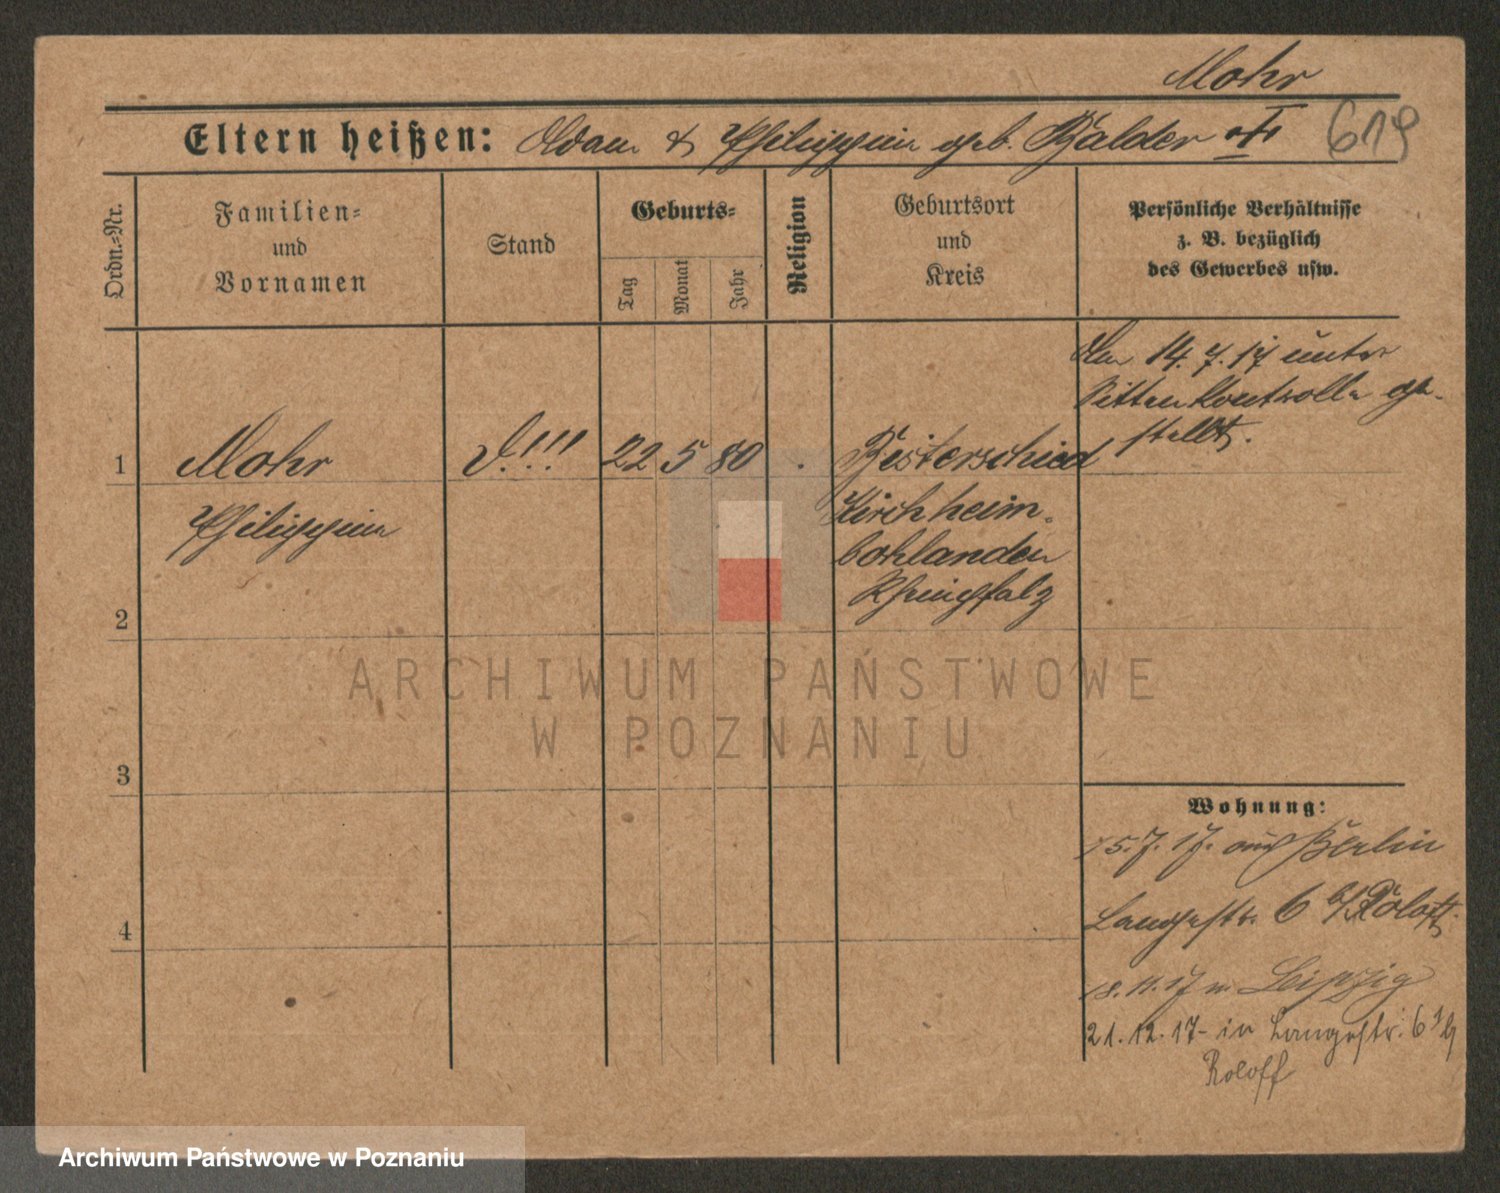 Mohr
Eltern heißen: Adam & Philippin geb. Balder
619
Ordn.=Nr.
Familien=
und
Vornamen
Stand
Geburts=
Tag
Monat
Jahr
Religion
Geburtsort
und
Kreis
Persönliche Verhältnisse
z. B. bezüglich
des Gewerbes usw.
Den 14.7.17 unter
Sittenkontrolle ge-
stellt.
1 Mohr 22 5 80 . Bisterschied
Philippin
Kirchheim-
bohlanden
Rheinpfalz
2
3
4
Wohnung:
15.7.17. aus Berlin
Langestr. 6 b/Roloff.
18.11.17 n. Leipzig
21.12.17 - in Langestr. 6 I b/
Roloff
ARCHIWUM PAŃSTWOWE
W POZNANIU
Archiwum Państwowe w Poznaniu